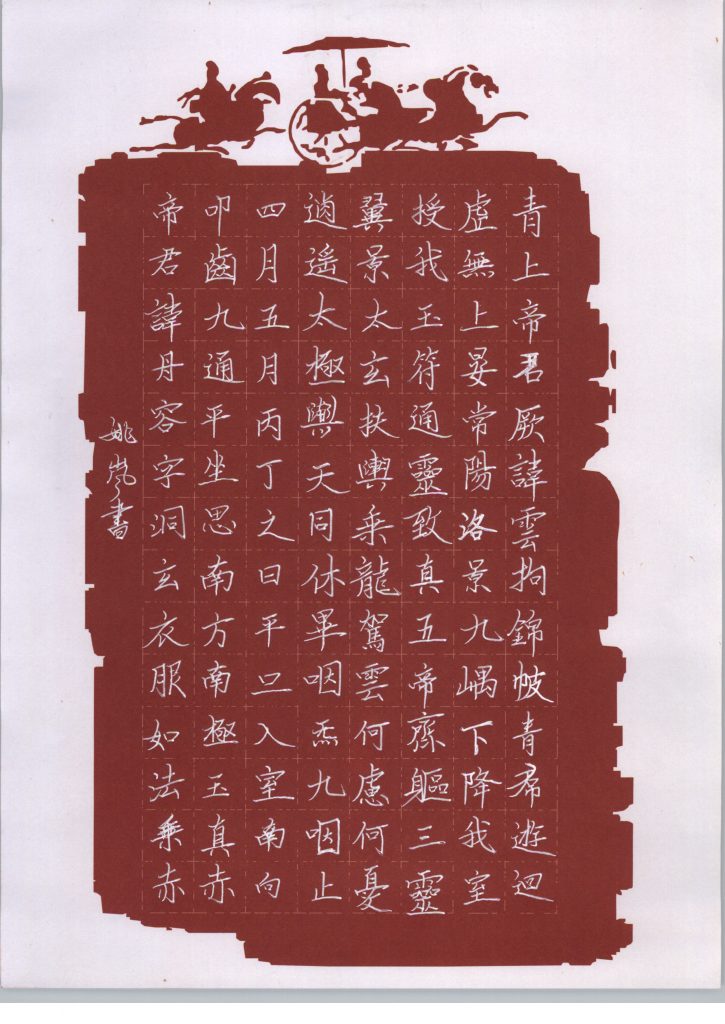 青上帝君厥諱雲拘錦帔青帬遊迴
虛無上晏常陽洛景九嵎下降我室
授我玉符通靈致真五帝齊軀三靈
翼景太玄扶輿乘龍駕雲何慮何憂
逍遙太極與天同休畢咽炁九咽止
四月五月丙丁之日平旦入室南向
叩齒九通平坐思南方南極玉真赤
帝君諱丹容字洞玄衣服如法乘赤
姚嵐書